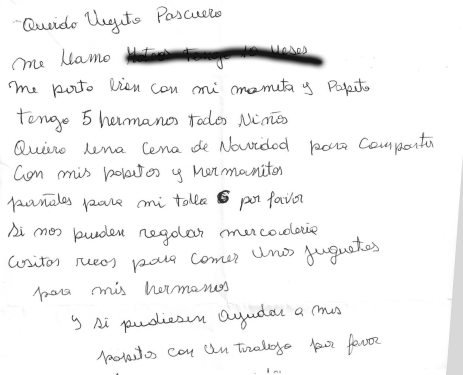 Querido Viejito Pascuero
me llamo
me porto bien con mi mamita y Papito
tengo 5 hermanos todos Niños
Quiero una Cena de Navidad para Compartir
Con mis papitos y Hermanitos
pañales para mi talla G por favor
Si nos pueden regalar mercaderia
cositas ricas para comer Unos juguetes
para mis hermanos
y si pudiesen ayudar a mis
papitos con Un trabajo por favor